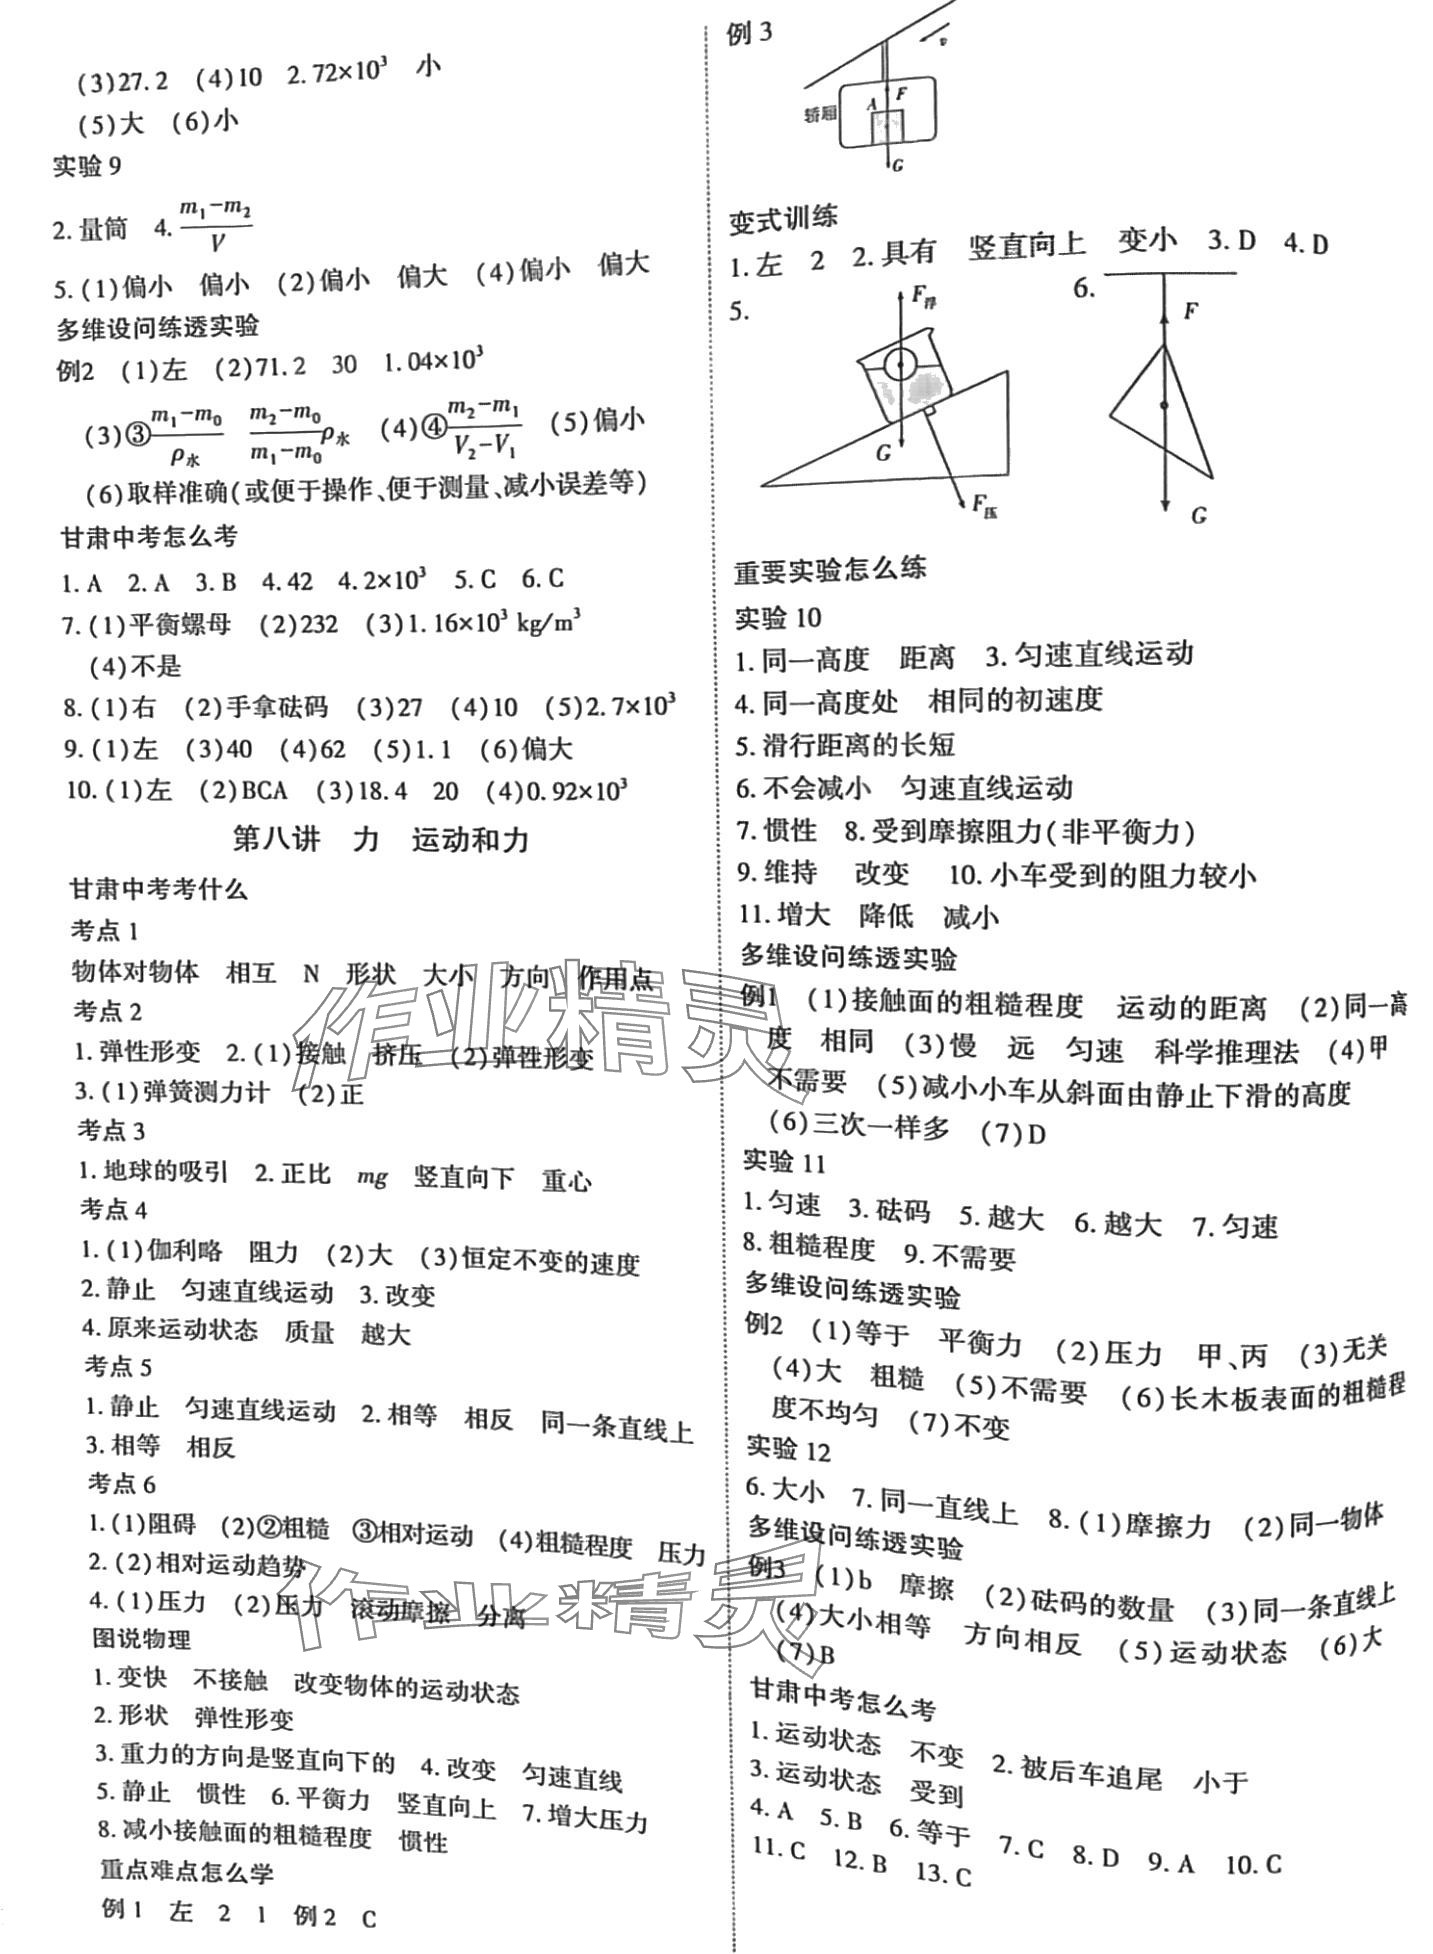 (3)27.2 (4)10 2.72×10³ 小
(5)大 (6)小
实验9
2.量筒 4.(m₁-m₂)/V
5.(1)偏小 偏小 (2)偏小 偏大 (4)偏小 偏大
多维设问练透实验
例2 (1)左 (2)71.2 30 1.04×10³
(3)③(m₁-m₀)/ρ水 (m₂-m₀)/(m₁-m₀)ρ水 (4)④(m₂-m₁)/(V₂-V₁) (5)偏小
(6)取样准确(或便于操作、便于测量、减小误差等)
甘肃中考怎么考
1.A 2.A 3.B 4.42 4.2×10³ 5.C 6.C
7.(1)平衡螺母 (2)232 (3)1.16×10³ kg/m³
(4)不是
8.(1)右 (2)手拿砝码 (3)27 (4)10 (5)2.7×10³
9.(1)左 (3)40 (4)62 (5)1.1 (6)偏大
10.(1)左 (2)BCA (3)18.4 20 (4)0.92×10³
第八讲 力 运动和力
甘肃中考考什么
考点1
物体对物体 相互 N 形状 大小 方向 作用点
考点2
1.弹性形变 2.(1)接触 挤压 (2)弹性形变
3.(1)弹簧测力计 (2)正
考点3
1.地球的吸引 2.正比 mg 竖直向下 重心
考点4
1.(1)伽利略 阻力 (2)大 (3)恒定不变的速度
2.静止 匀速直线运动 3.改变
4.原来运动状态 质量 越大
考点5
1.静止 匀速直线运动 2.相等 相反 同一条直线上
3.相等 相反
考点6
1.(1)阻碍 (2)②粗糙 ③相对运动 (4)粗糙程度 压力
2.(2)相对运动趋势
4.(1)压力 (2)压力 滚动摩擦 分离
图说物理
1.变快 不接触 改变物体的运动状态
2.形状 弹性形变
3.重力的方向是竖直向下的 4.改变 匀速直线
5.静止 惯性 6.平衡力 竖直向上 7.增大压力
8.减小接触面的粗糙程度 惯性
重点难点怎么学
例1 左 2 1 例2 C
例3
v
轿厢 A F
G
变式训练
1.左 2 2.具有 竖直向上 变小 3.D 4.D
5. F浮 G F压
6. F G
重要实验怎么练
实验10
1.同一高度 距离 3.匀速直线运动
4.同一高度处 相同的初速度
5.滑行距离的长短
6.不会减小 匀速直线运动
7.惯性 8.受到摩擦阻力(非平衡力)
9.维持 改变 10.小车受到的阻力较小
11.增大 降低 减小
多维设问练透实验
例1 (1)接触面的粗糙程度 运动的距离 (2)同一高
度 相同 (3)慢 远 匀速 科学推理法 (4)甲
不需要 (5)减小小车从斜面由静止下滑的高度
(6)三次一样多 (7)D
实验11
1.匀速 3.砝码 5.越大 6.越大 7.匀速
8.粗糙程度 9.不需要
多维设问练透实验
例2 (1)等于 平衡力 (2)压力 甲、丙 (3)无关
(4)大 粗糙 (5)不需要 (6)长木板表面的粗糙程
度不均匀 (7)不变
实验12
6.大小 7.同一直线上 8.(1)摩擦力 (2)同一物体
多维设问练透实验
例3 (1)b 摩擦 (2)砝码的数量 (3)同一条直线上
(4)大小相等 方向相反 (5)运动状态 (6)大
(7)B
甘肃中考怎么考
1.运动状态 不变 2.被后车追尾 小于
3.运动状态 受到
4.A 5.B 6.等于 7.C 8.D 9.A 10.C
11.C 12.B 13.C
作业精灵
作业精灵